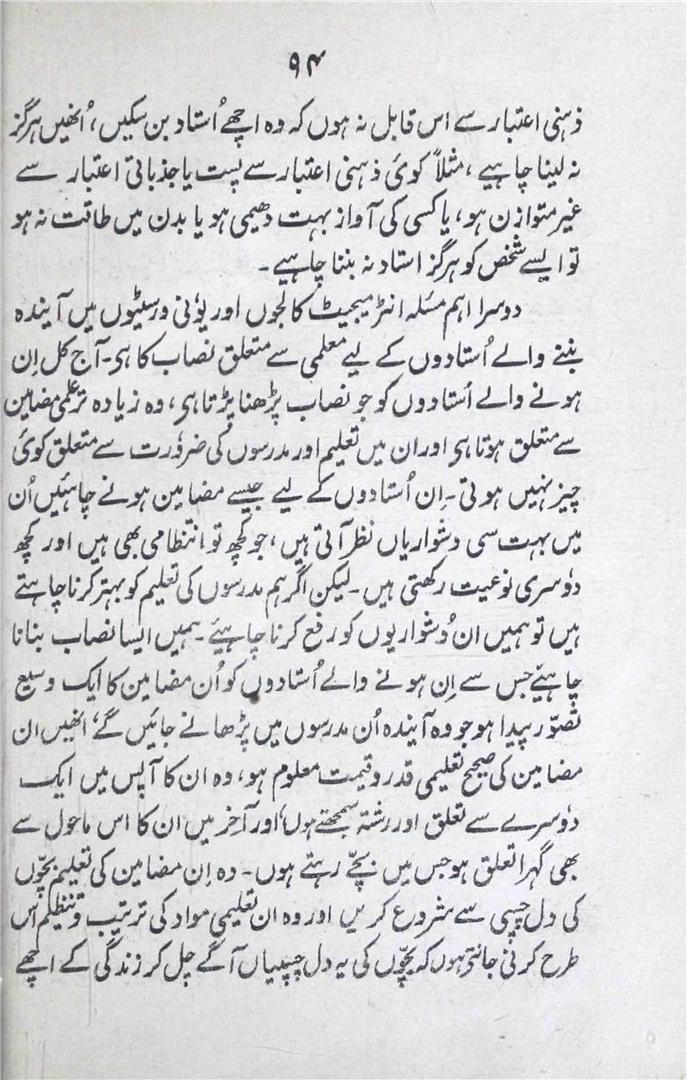 ۹۴
ذہنی اعتبار سے اس قابل نہ ہوں کہ وہ اچھے اُستاد بن سکیں، اُنھیں ہرگز
نہ لینا چاہیے، مثلاً کوئی ذہنی اعتبار سے پست یا جذباتی اعتبار سے
غیر متوازن ہو، یا کسی کی آواز بہت دھیمی ہو یا بدن میں طاقت نہ ہو
تو ایسے شخص کو ہرگز استاد نہ بننا چاہیے۔
دوسرا اہم مسئلہ انٹرمیجیٹ کالجوں اور یونی ورسٹیوں میں آیندہ
بننے والے اُستادوں کے لیے معلمی سے متعلق نصاب کا ہی۔ آج کل اِن
ہونے والے اُستادوں کو جو نصاب پڑھنا پڑتا ہی، وہ زیادہ تر علمی مضامین
سے متعلق ہوتا ہی اور ان میں تعلیم اور مدرسوں کی ضرورت سے متعلق کوئی
چیز نہیں ہوتی۔ اِن اُستادوں کے لیے جیسے مضامین ہونے چاہئیں اُن
میں بہت سی دشواریاں نظر آتی ہیں، جو کچھ تو انتظامی بھی ہیں اور کچھ
دوسری نوعیت رکھتی ہیں۔ لیکن اگر ہم مدرسوں کی تعلیم کو بہتر کرنا چاہتے
ہیں تو ہمیں ان دُشواریوں کو رفع کرنا چاہیئے۔ ہمیں ایسا نصاب بنانا
چاہیئے جس سے اِن ہونے والے اُستادوں کو اُن مضامین کا ایک وسیع
تصوّر پیدا ہو جو وہ آیندہ اُن مدرسوں میں پڑھانے جائیں گے، انھیں ان
مضامین کی صحیح تعلیمی قدر و قیمت معلوم ہو، وہ ان کا آپس میں ایک
دوسرے سے تعلق اور رشتہ سمجھتے ہوں، اور آخر میں ان کا اس ماحول سے
بھی گہرا تعلق ہو جس میں بچّے رہتے ہوں۔ وہ اِن مضامین کی تعلیم بچّوں
کی دل چسپی سے شروع کریں اور وہ ان تعلیمی مواد کی ترتیب و تنظیم اس
طرح کرنی جانتے ہوں کہ بچّوں کی یہ دل چسپیاں آگے چل کر زندگی کے اچھے